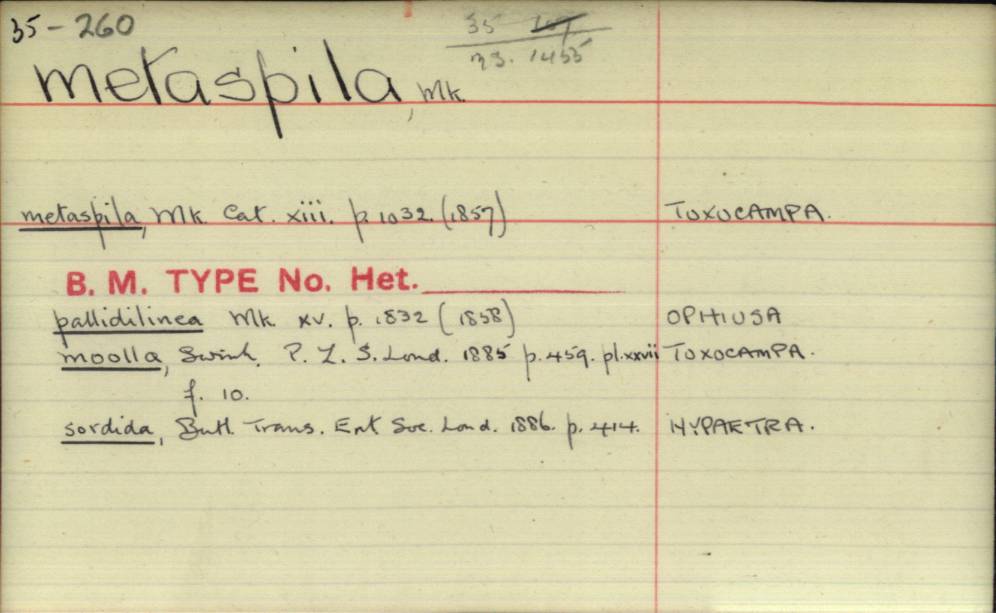 35-260
35 107
23. 1455
metaspila, Wlk.
metaspila, Wlk. Cat. xiii. p. 1032. (1857) TOXOCAMPA.
B. M. TYPE No. Het.
pallidilinea Wlk xv. p. 1832 (1858) OPHIUSA
moolla, Swinh. P. Z. S. Lond. 1885 p. 459. pl. xxvii TOXOCAMPA.
f. 10.
sordida, Butl. Trans. Ent Soc. Lond. 1886. p. 414. HYPAETRA.